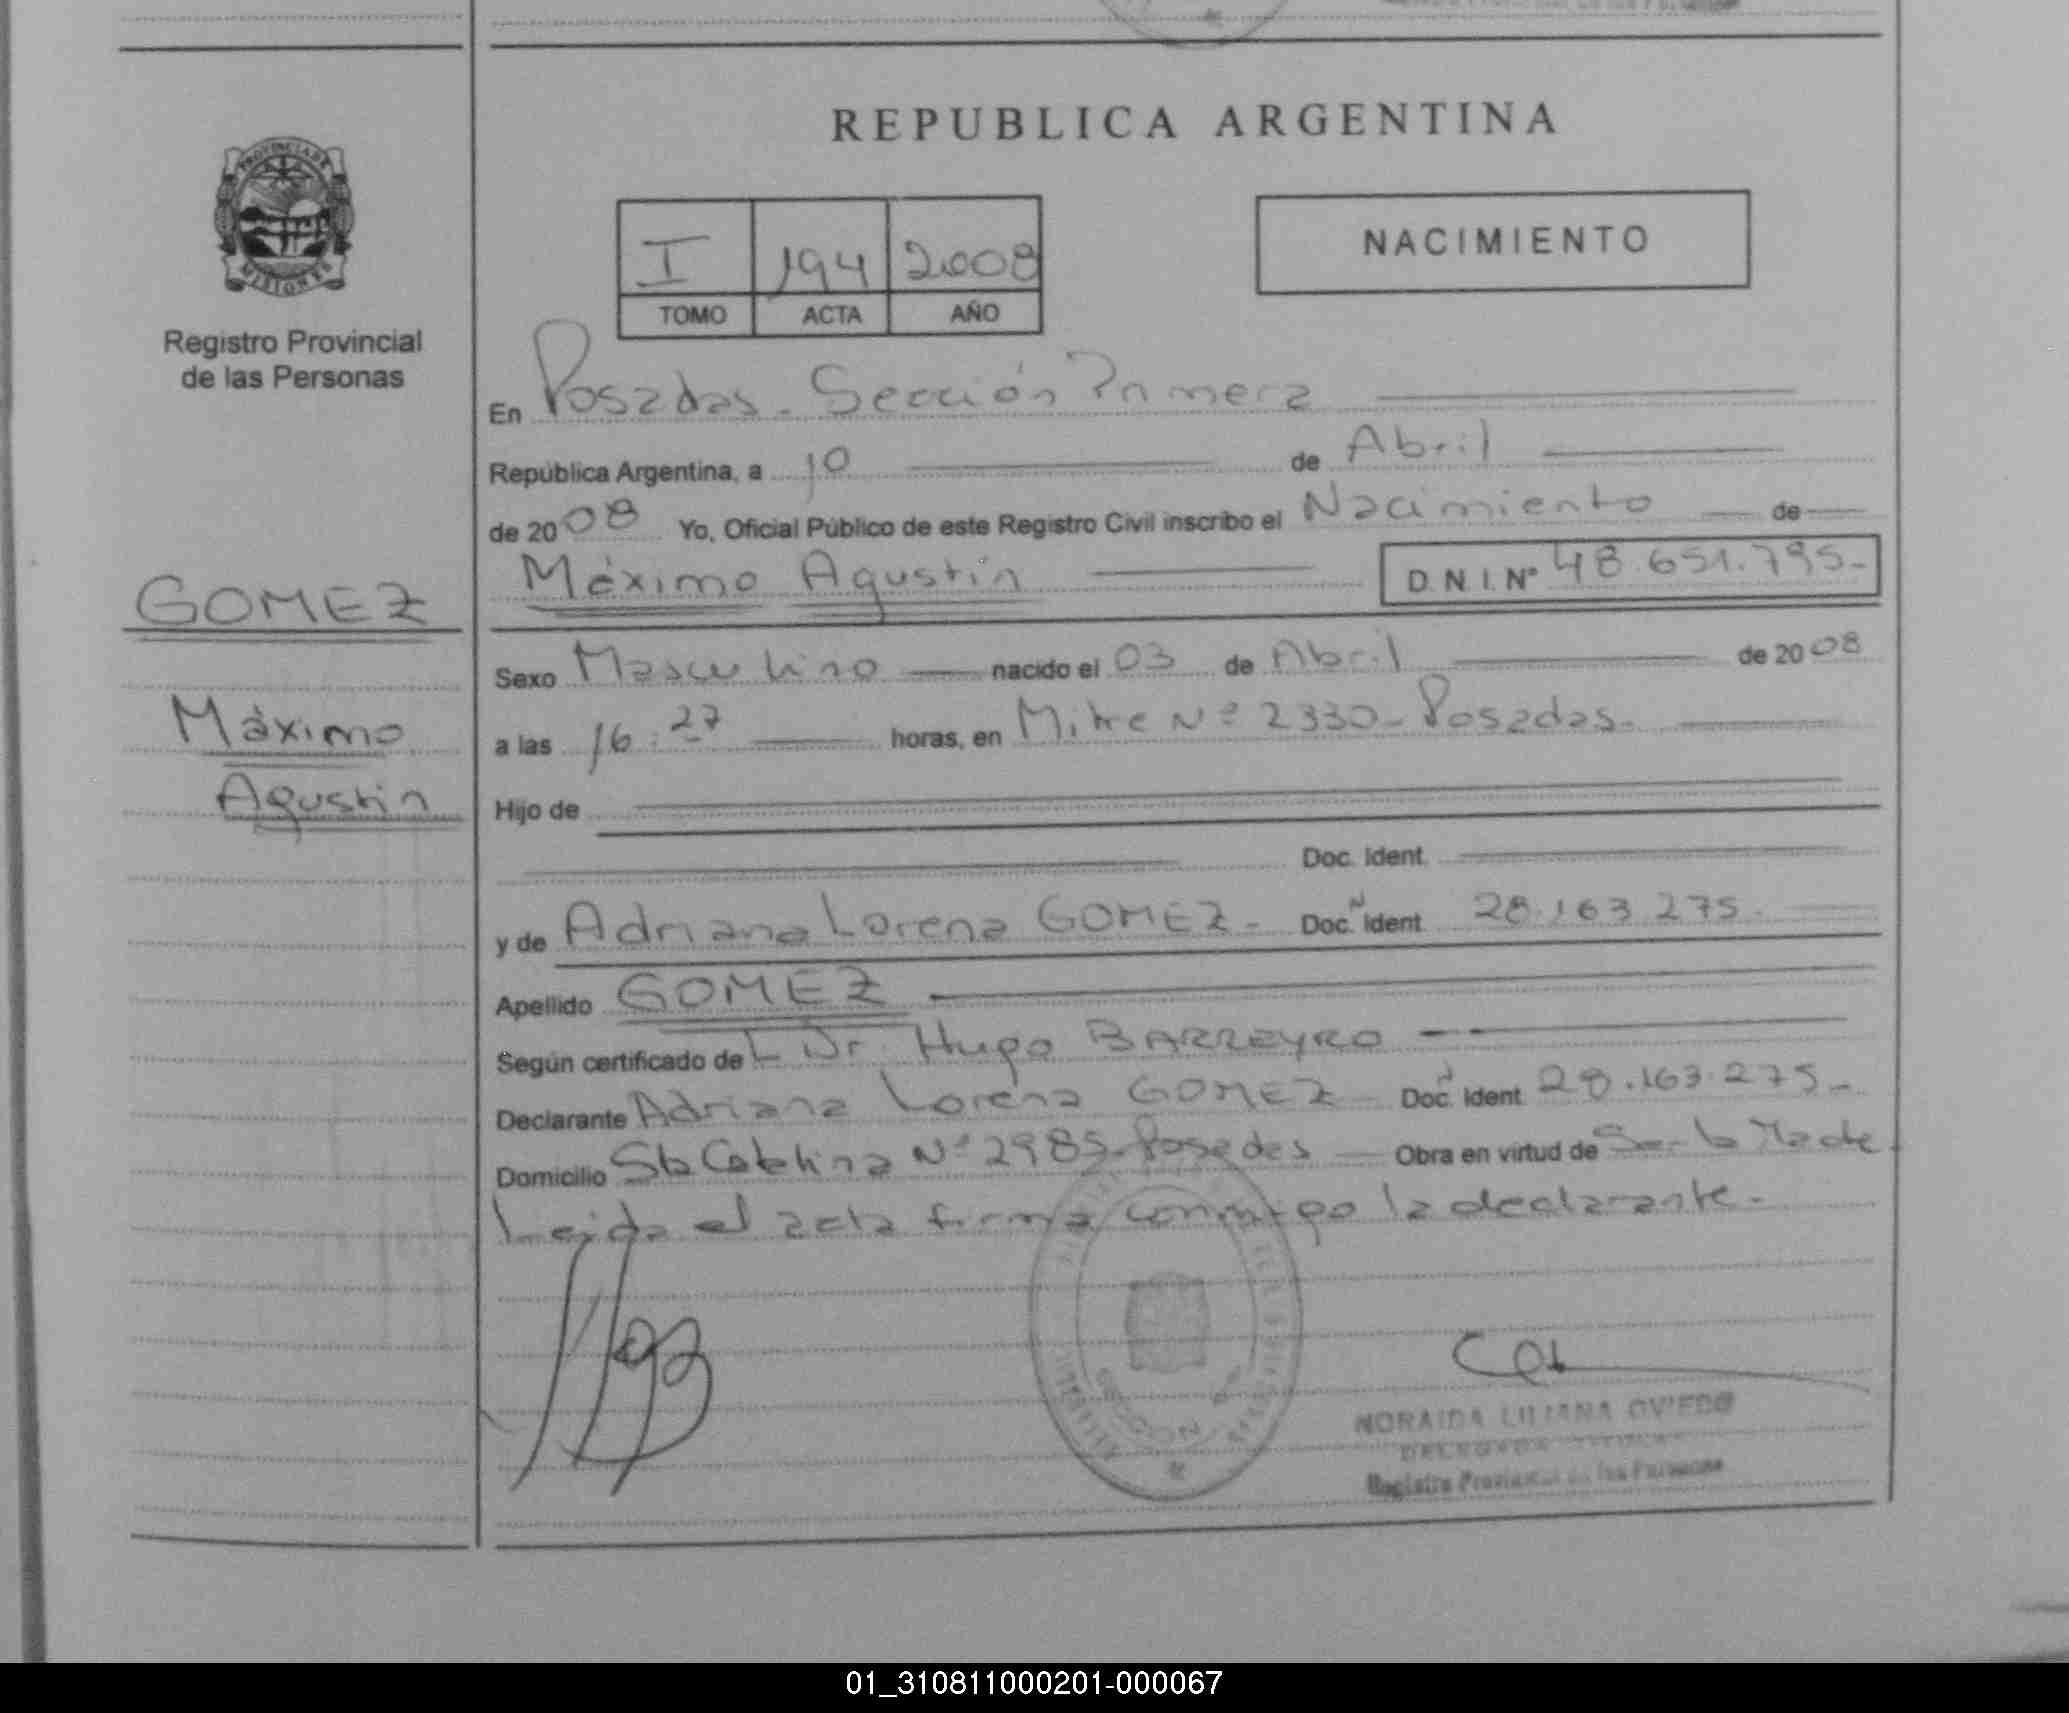 REPUBLICA ARGENTINA
PROVINCIA DE
MISIONES
Registro Provincial
de las Personas
I 194 2008
TOMO ACTA AÑO
NACIMIENTO
En Posadas. Sección Primera
República Argentina, a 10 de Abril
de 2008 Yo, Oficial Público de este Registro Civil inscribo el Nacimiento de
Máximo Agustín D.N.I. Nº 48.651.795-
GOMEZ
Máximo
Agustín
Sexo Masculino nacido el 03 de Abril de 2008
a las 16:27 horas, en Mitre Nº 2330- Posadas.
Hijo de
Doc. Ident.
y de Adriana Lorena GOMEZ- Doc. Ident 28.163.275.
Apellido GOMEZ
Según certificado del Dr. Hugo BARREYRO
Declarante Adriana Lorena GOMEZ Doc. Ident 28.163.275-
Domicilio Sta Catalina Nº 2985- Posadas Obra en virtud de Ser la Madre.
Leída el acta firma conmigo la declarante.
NORAIDA LILIANA OVIEDO
DELEGADA TITULAR
Registro Provincial de las Personas
01_310811000201-000067